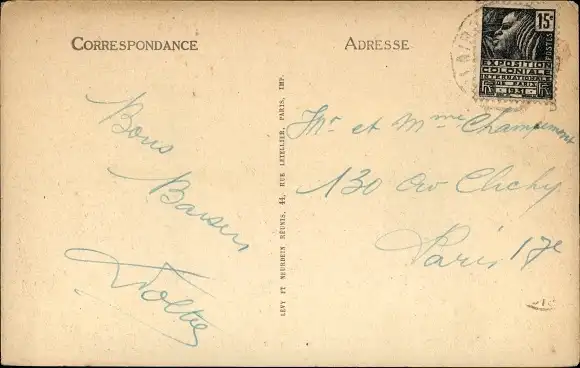 CORRESPONDANCE
ADRESSE
15c
POSTES
EXPOSITION
COLONIALE
INTERNATIONALE
DE PARIS
1931
Bons
Baisers
LEVY ET NEURDEIN RÉUNIS, 44, RUE LETELLIER, PARIS, IMP.
Mr et Mme Champemont
130 Av Clichy
Paris 17e